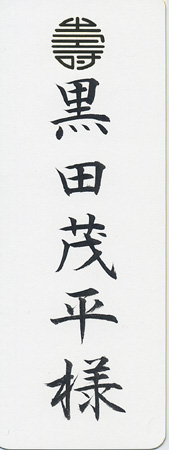 壽
黒田茂平様